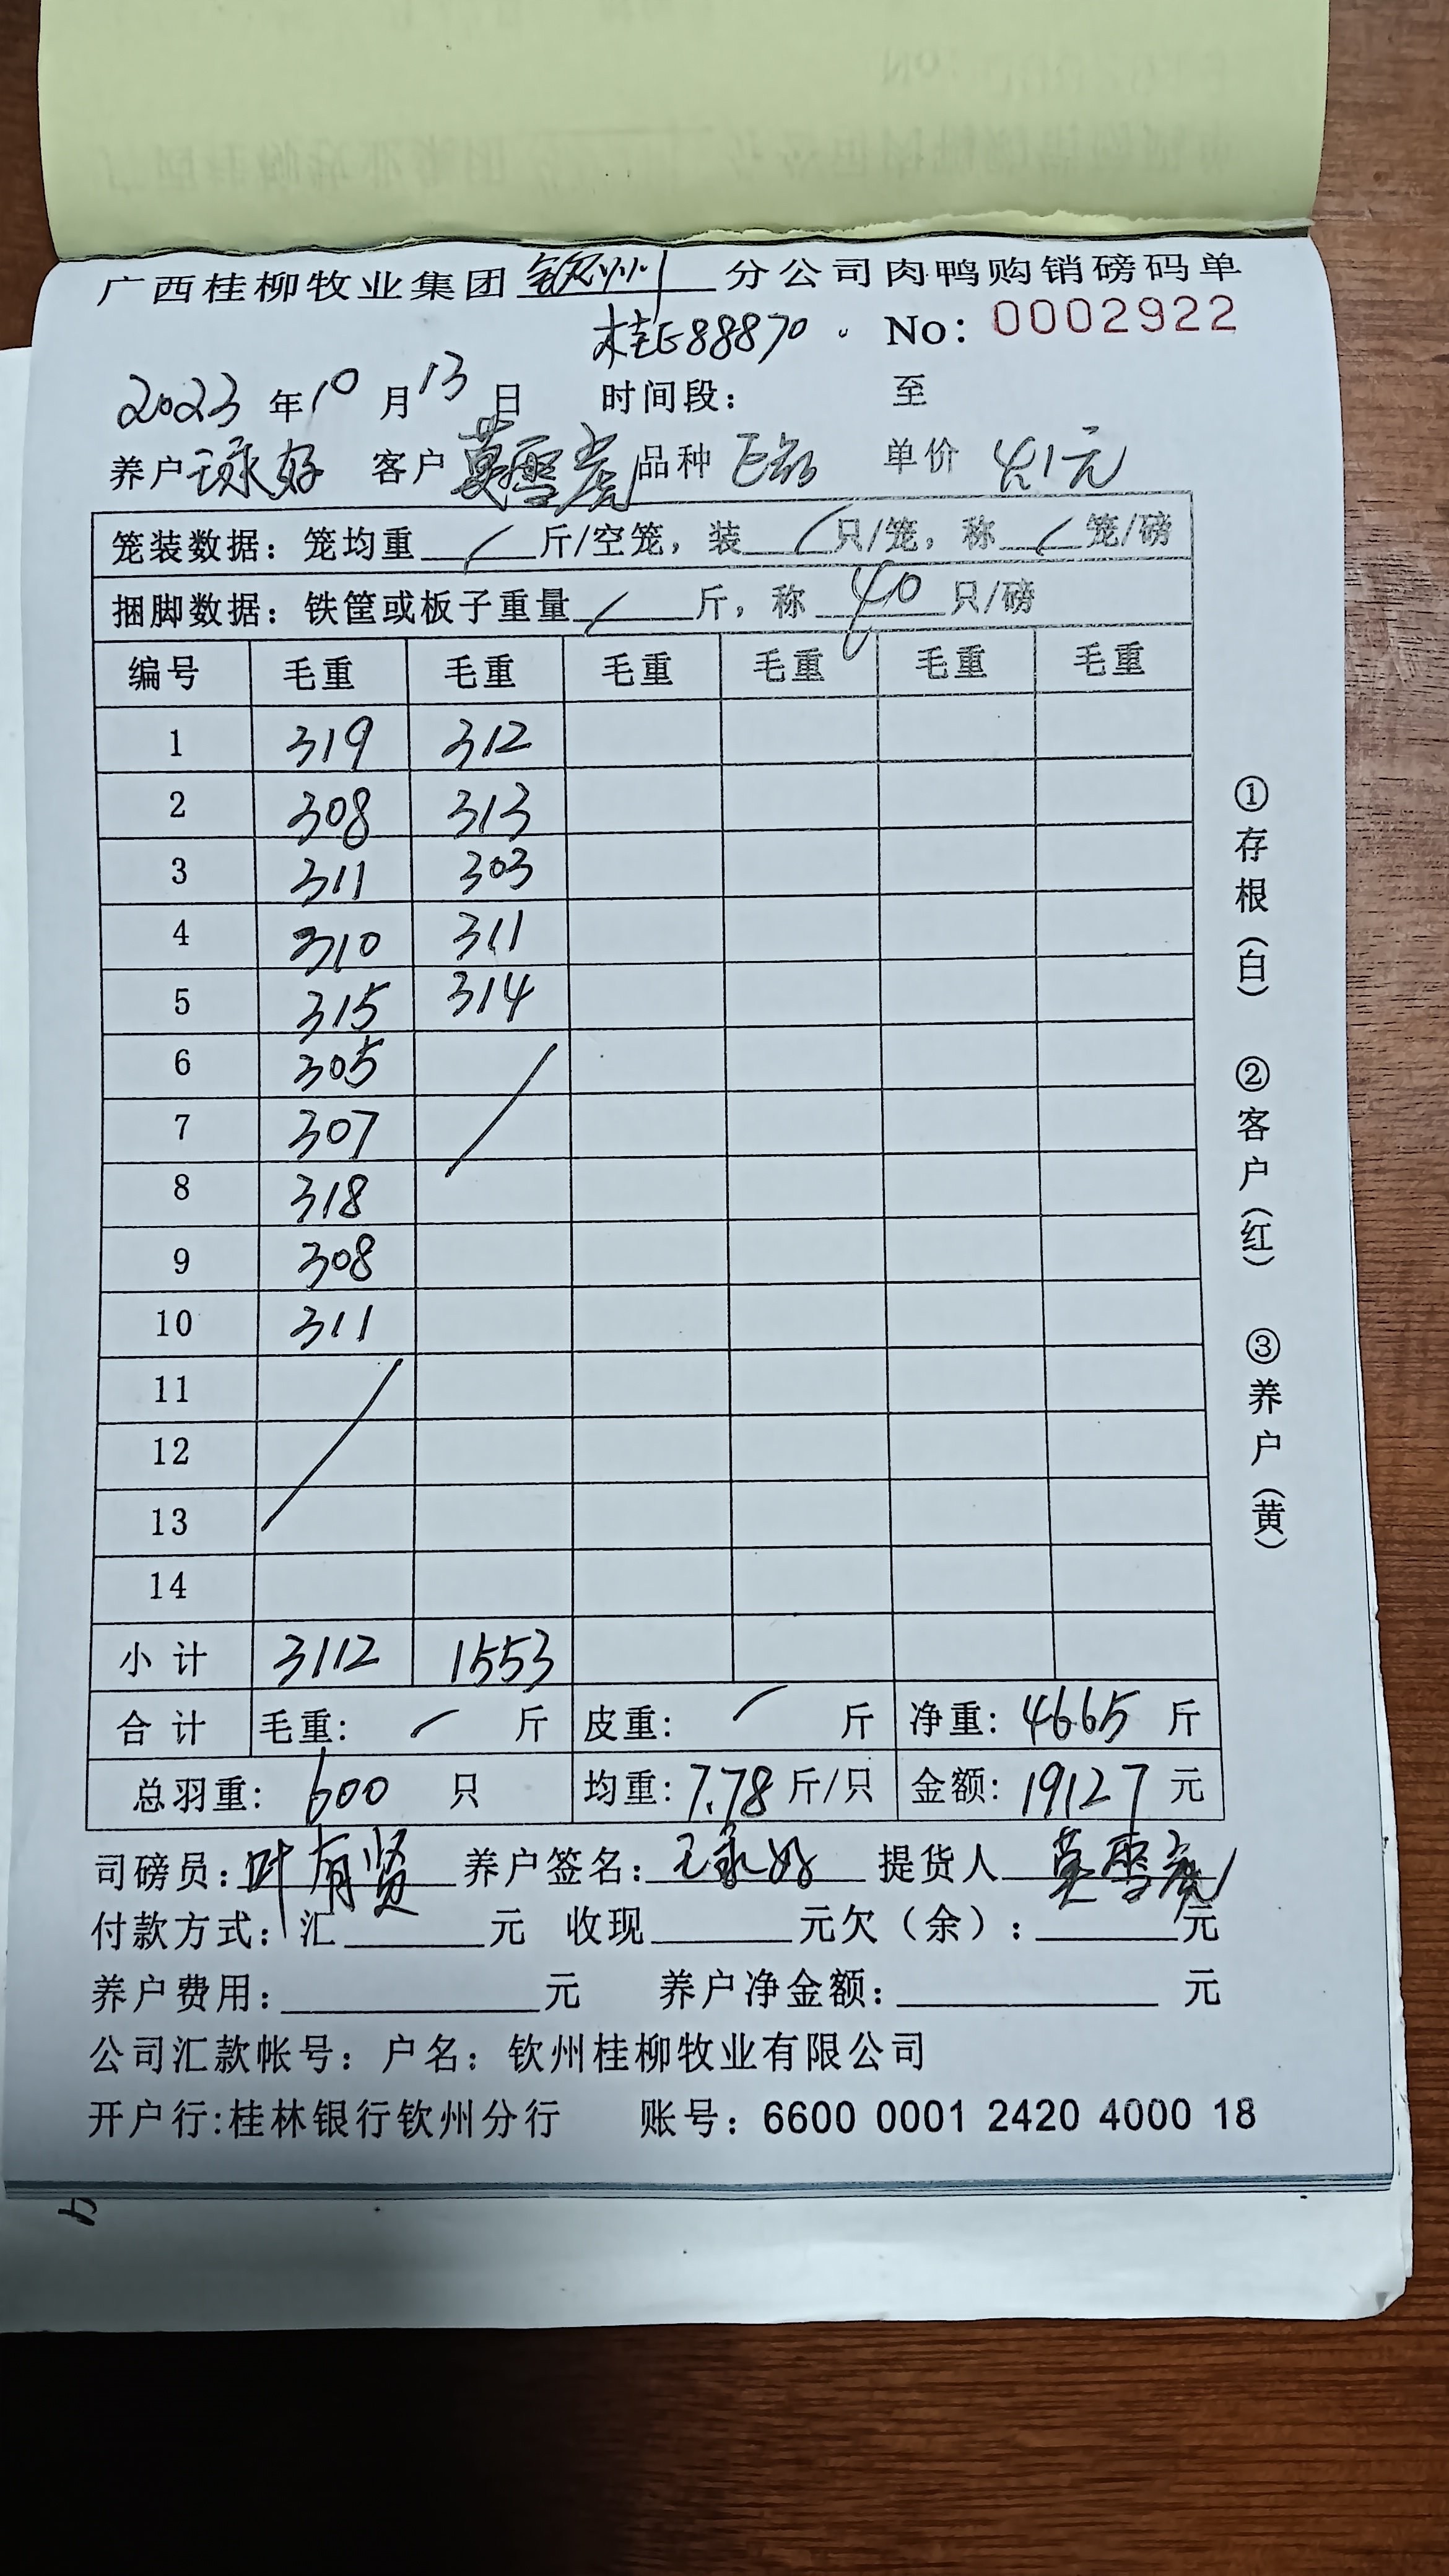 广西桂柳牧业集团钦州分公司肉鸭购销磅码单
桂E88870 No: 0002922
2023年10月13日 时间段: 至
养户 客户莫雪亮 品种 单价 4.1元
笼装数据: 笼均重/斤/空笼, 装/只/笼, 称/笼/磅
捆脚数据: 铁筐或板子重量/斤, 称40只/磅
编号 毛重 毛重 毛重 毛重 毛重 毛重
1 319 312
2 308 313
3 311 303
4 310 311
5 315 314
6 305
7 307
8 318
9 308
10 311
11
12
13
14
小计 3112 1553
合计 毛重: / 斤 皮重: / 斤 净重: 4665 斤
总羽重: 600 只 均重: 7.78 斤/只 金额: 19127 元
司磅员: 叶有贤 养户签名: 提货人 莫雪亮
付款方式: 汇 元 收现 元欠(余): 元
养户费用: 元 养户净金额: 元
公司汇款帐号: 户名: 钦州桂柳牧业有限公司
开户行:桂林银行钦州分行 账号: 6600 0001 2420 4000 18
①存根(白) ②客户(红) ③养户(黄)